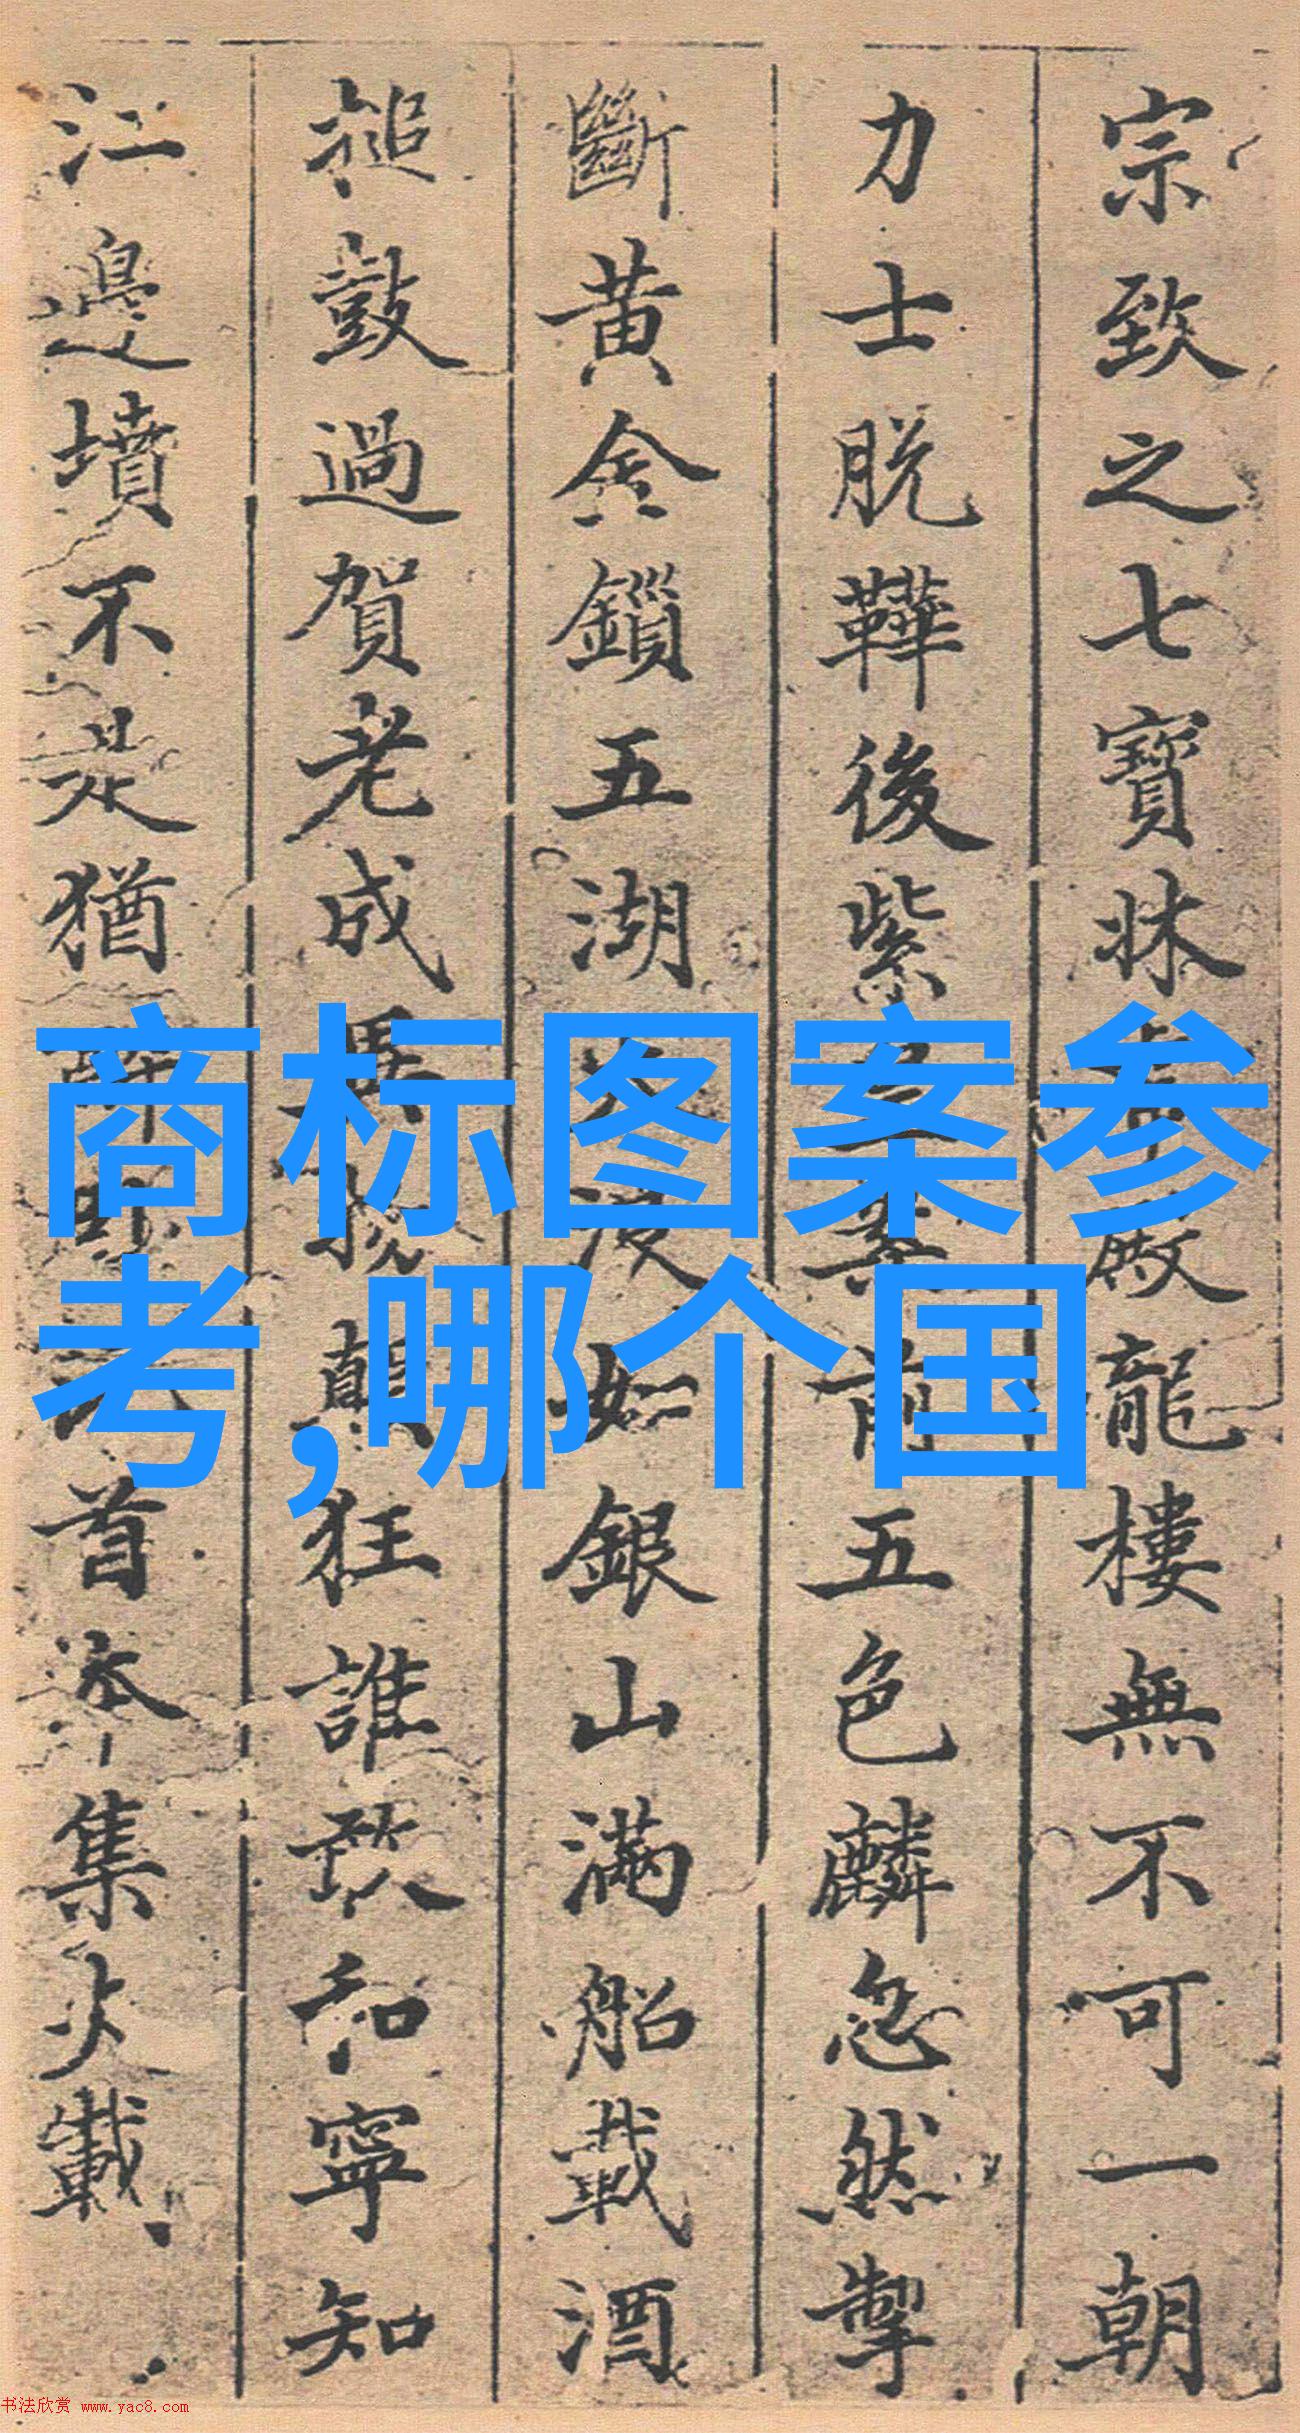 宗致之七寶牀
龍樓無不可一朝
力士脱鞾後紫
前五色麟忽然掣
斷黄金鎖五湖
如銀山滿船載酒
搥鼓過賀老成
顛狂誰敢和寧知
江邊墳不是猶
首本集火載
商标图案参
考,哪个国
书法欣赏 www.yac8.com